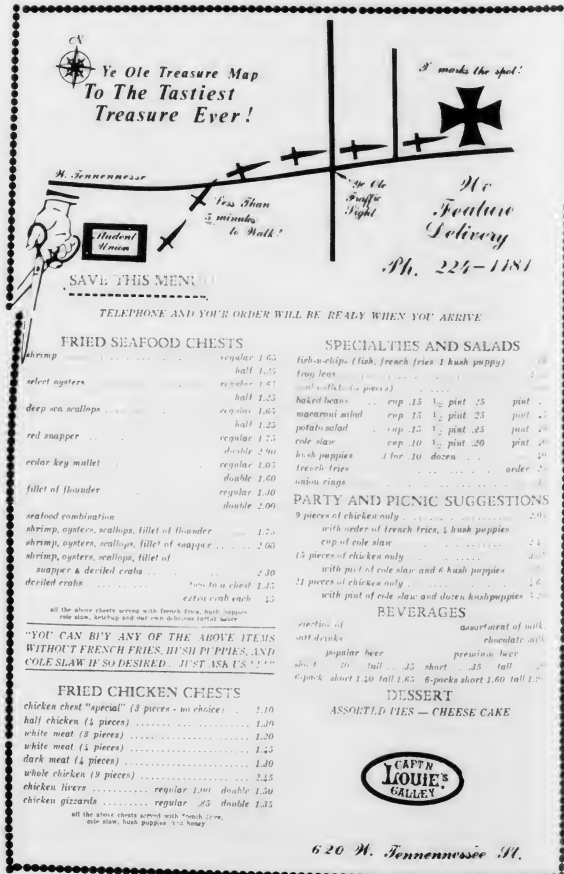 N
Ye Ole Treasure Map
To The Tastiest
Treasure Ever!
X marks the spot!
W. Tennennesse
Less Than
5 minutes
to Walk!
Ye Ole
Traffic
Light
Student
Union
We
Feature
Delivery
Ph. 224-1181
SAVE THIS MENU
TELEPHONE AND YOUR ORDER WILL BE READY WHEN YOU ARRIVE
FRIED SEAFOOD CHESTS
shrimp regular 1.65
half 1.25
select oysters regular 1.65
half 1.25
deep sea scallops regular 1.65
half 1.25
red snapper regular 1.75
double 2.90
cedar key mullet regular 1.05
double 1.60
fillet of flounder regular 1.30
double 2.00
seafood combination
shrimp, oysters, scallops, fillet of flounder 1.75
shrimp, oysters, scallops, fillet of snapper 2.00
shrimp, oysters, scallops, fillet of
snapper & deviled crabs 2.30
deviled crabs two to a chest 1.35
extra crab each .45
all the above chests served with french fries, hush puppies
cole slaw, ketchup and our own delicious tartar sauce
"YOU CAN BUY ANY OF THE ABOVE ITEMS
WITHOUT FRENCH FRIES, HUSH PUPPIES, AND
COLE SLAW IF SO DESIRED. JUST ASK US!!!"
FRIED CHICKEN CHESTS
chicken chest "special" (3 pieces - no choice) 1.10
half chicken (4 pieces) 1.30
white meat (3 pieces) 1.20
white meat (4 pieces) 1.45
dark meat (4 pieces) 1.30
whole chicken (9 pieces) 2.45
chicken livers regular 1.00 double 1.50
chicken gizzards regular .85 double 1.35
all the above chests served with french fries,
cole slaw, hush puppies and honey
SPECIALTIES AND SALADS
fish-n-chips (fish, french fries 1 hush puppy)
frog legs
baked beans cup .15 ½ pint .25 pint
macaroni salad cup .15 ½ pint .25 pint
potato salad cup .15 ½ pint .25 pint
cole slaw cup .10 ½ pint .20 pint
hush puppies 3 for .10 dozen
french fries order
onion rings
PARTY AND PICNIC SUGGESTIONS
9 pieces of chicken only
with order of french fries, 4 hush puppies
cup of cole slaw
15 pieces of chicken only
with pint of cole slaw and 6 hush puppies
21 pieces of chicken only
with pint of cole slaw and dozen hushpuppies
BEVERAGES
selection of assortment of milk,
soft drinks chocolate milk
popular beer premium beer
short tall .35 short .35 tall
6-pack short 1.40 tall 1.65 6-packs short 1.60 tall
DESSERT
ASSORTED PIES — CHEESE CAKE
CAPT'N
LOUIE'S
GALLEY
620 W. Tennennessee St.